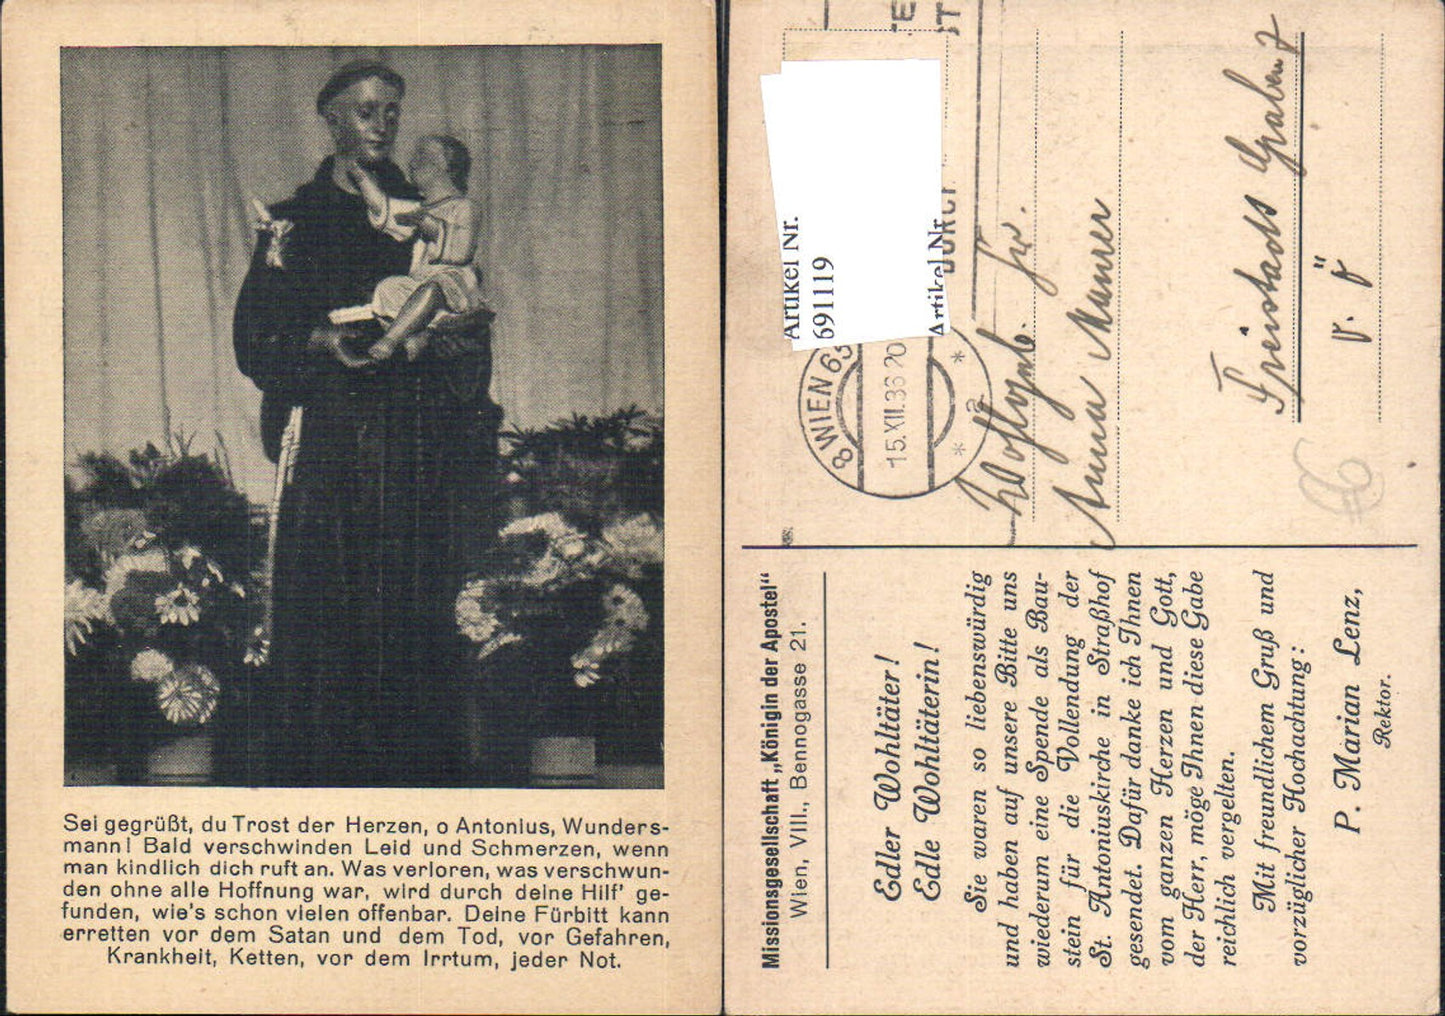 Sei gegrüßt, du Trost der Herzen, o Antonius, Wunders-
mann! Bald verschwinden Leid und Schmerzen, wenn
man kindlich dich ruft an. Was verloren, was verschwun-
den ohne alle Hoffnung war, wird durch deine Hilf' ge-
funden, wie's schon vielen offenbar. Deine Fürbitt kann
erretten vor dem Satan und dem Tod, vor Gefahren,
Krankheit, Ketten, vor dem Irrtum, jeder Not.
Missionsgesellschaft „Königin der Apostel“
Wien, VIII., Bennogasse 21.
Edler Wohltäter!
Edle Wohltäterin!
Sie waren so liebenswürdig
und haben auf unsere Bitte uns
wiederum eine Spende als Bau-
stein für die Vollendung der
St. Antoniuskirche in Straßhof
gesendet. Dafür danke ich Ihnen
vom ganzen Herzen und Gott,
der Herr, möge Ihnen diese Gabe
reichlich vergelten.
Mit freundlichem Gruß und
vorzüglicher Hochachtung:
P. Marian Lenz,
Rektor.
Artikel Nr.
691119
Artikel Nr
8 WIEN 63
15.XII.36 20
* a *
Wohlgeb. Fr.
Anna
Freistadt Graben 7